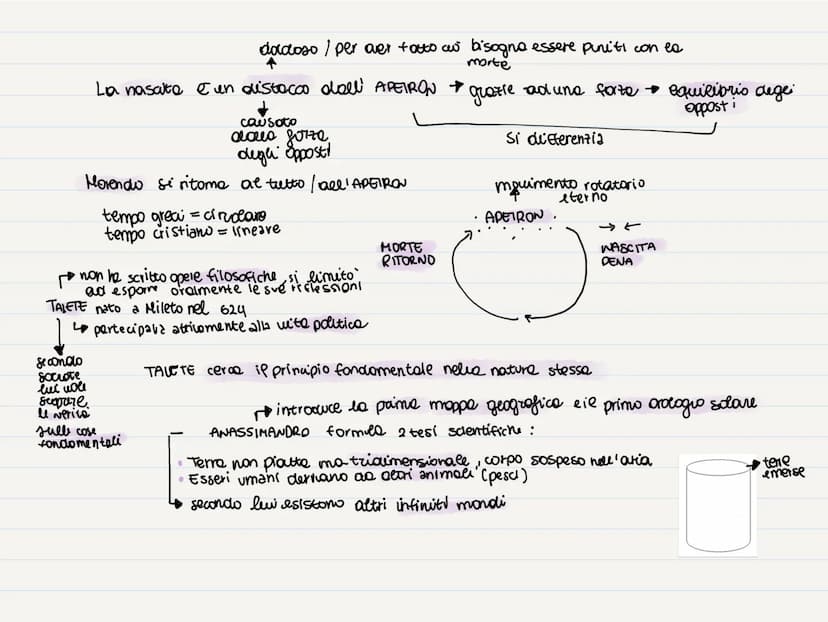 doloroso / per aver fatto ciò bisogna essere puniti con la
morte
La nascita è un distacco dall' APEIRON → grazie ad una forza → equilibrio degli
opposti
causato
dalla forza
degli opposti
si differenzia
Morendo si ritorna al tutto / all'APEIRON
tempo greci = circolare
tempo cristiano = lineare
movimento rotatorio
eterno
APEIRON
MORTE
RITORNO
→ ←
NASCITA
PENA
non ha scritto opere filosofiche, si limitò
ad esporre oralmente le sue riflessioni
TALETE nato a Mileto nel 624
partecipava attivamente alla vita politica
secondo
lui vuole
scoprire
la verità
sulle cose
fondamentali
TALETE cerca il principio fondamentale nella natura stessa
introduce la prima mappa geografica e il primo orologio solare
— ANASSIMANDRO formula 2 tesi scientifiche :
• Terra non piatta ma tridimensionale, corpo sospeso nell'aria
• Esseri umani derivano da altri animali (pesci)
secondo lui esistono altri infiniti mondi
terre
emerse